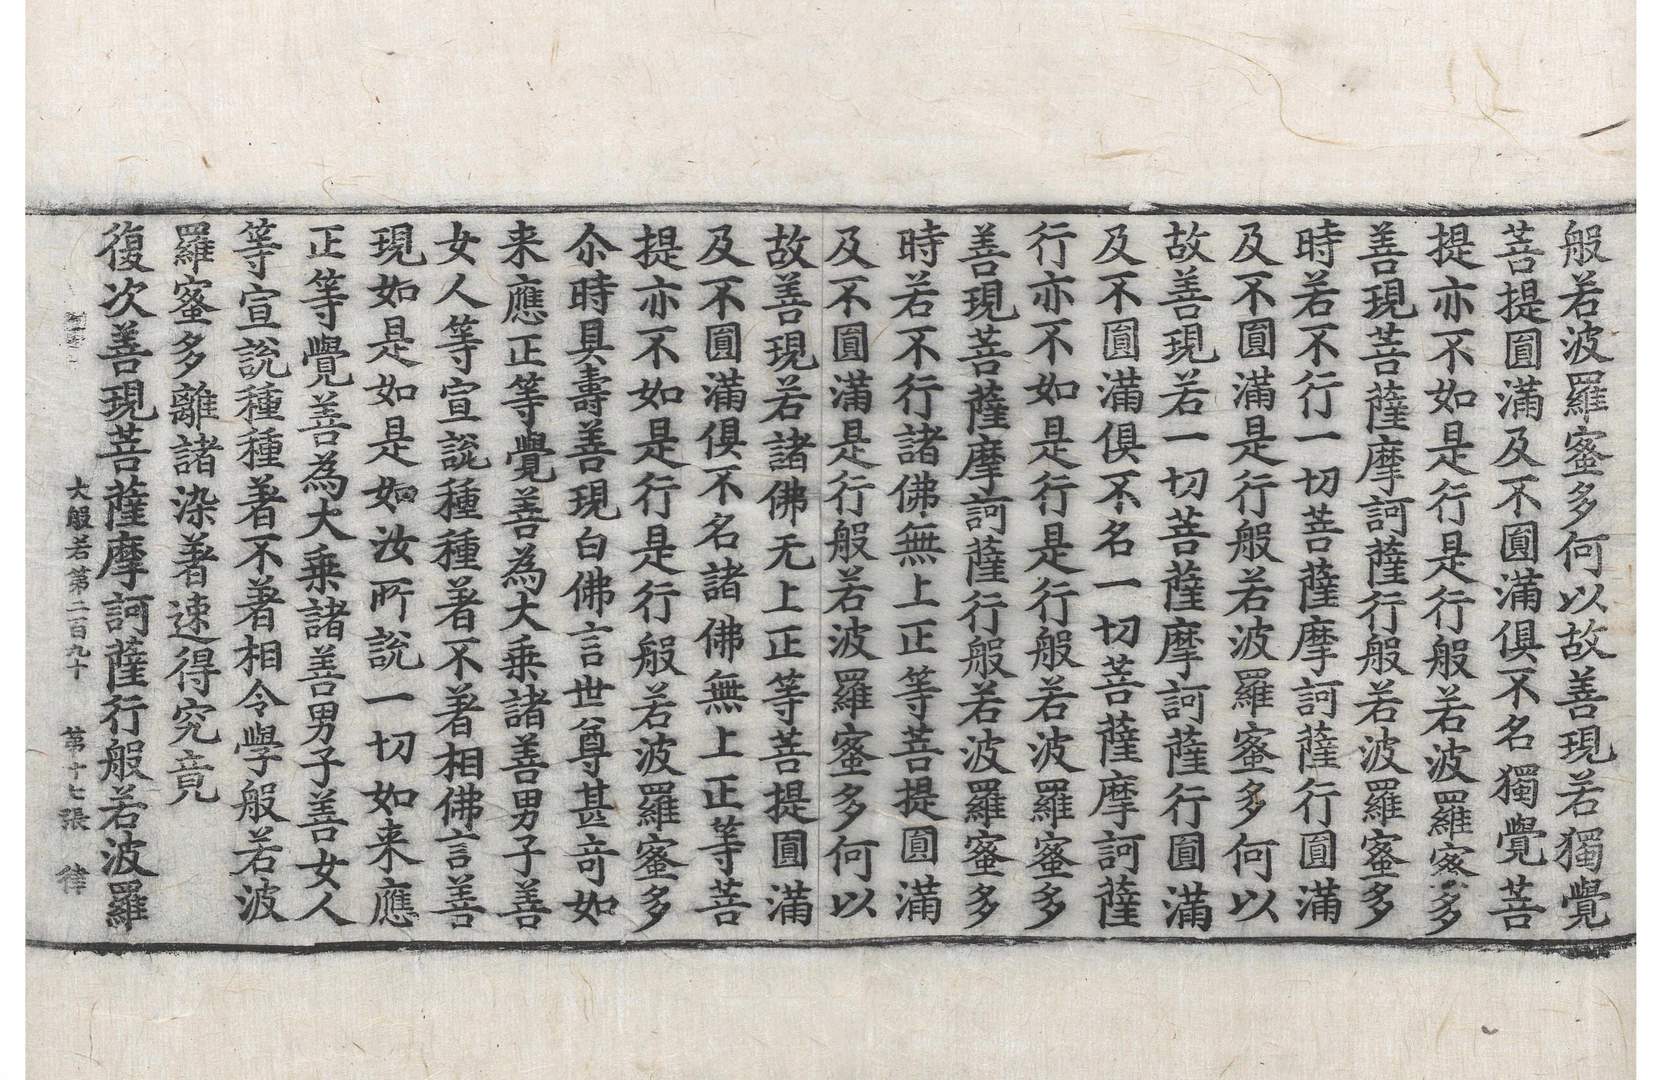 般若波羅蜜多何以故善現若獨覺
菩提圓滿及不圓滿俱不名獨覺菩
提亦不如是行是行般若波羅蜜多
善現菩薩摩訶薩行般若波羅蜜多
時若不行一切菩薩摩訶薩行圓滿
及不圓滿是行般若波羅蜜多何以
故善現若一切菩薩摩訶薩行圓滿
及不圓滿俱不名一切菩薩摩訶薩
行亦不如是行是行般若波羅蜜多
善現菩薩摩訶薩行般若波羅蜜多
時若不行諸佛無上正等菩提圓滿
及不圓滿是行般若波羅蜜多何以
故善現若諸佛无上正等菩提圓滿
及不圓滿俱不名諸佛無上正等菩
提亦不如是行是行般若波羅蜜多
尒時具壽善現白佛言世尊甚竒如
来應正等覺善為大乗諸善男子善
女人等宣說種種著不著相佛言善
現如是如是如汝所說一切如来應
正等覺善為大乗諸善男子善女人
等宣說種種著不著相令學般若波
羅蜜多離諸染著速得究竟
復次善現菩薩摩訶薩行般若波羅
大般若第二百九十 第十七張 律